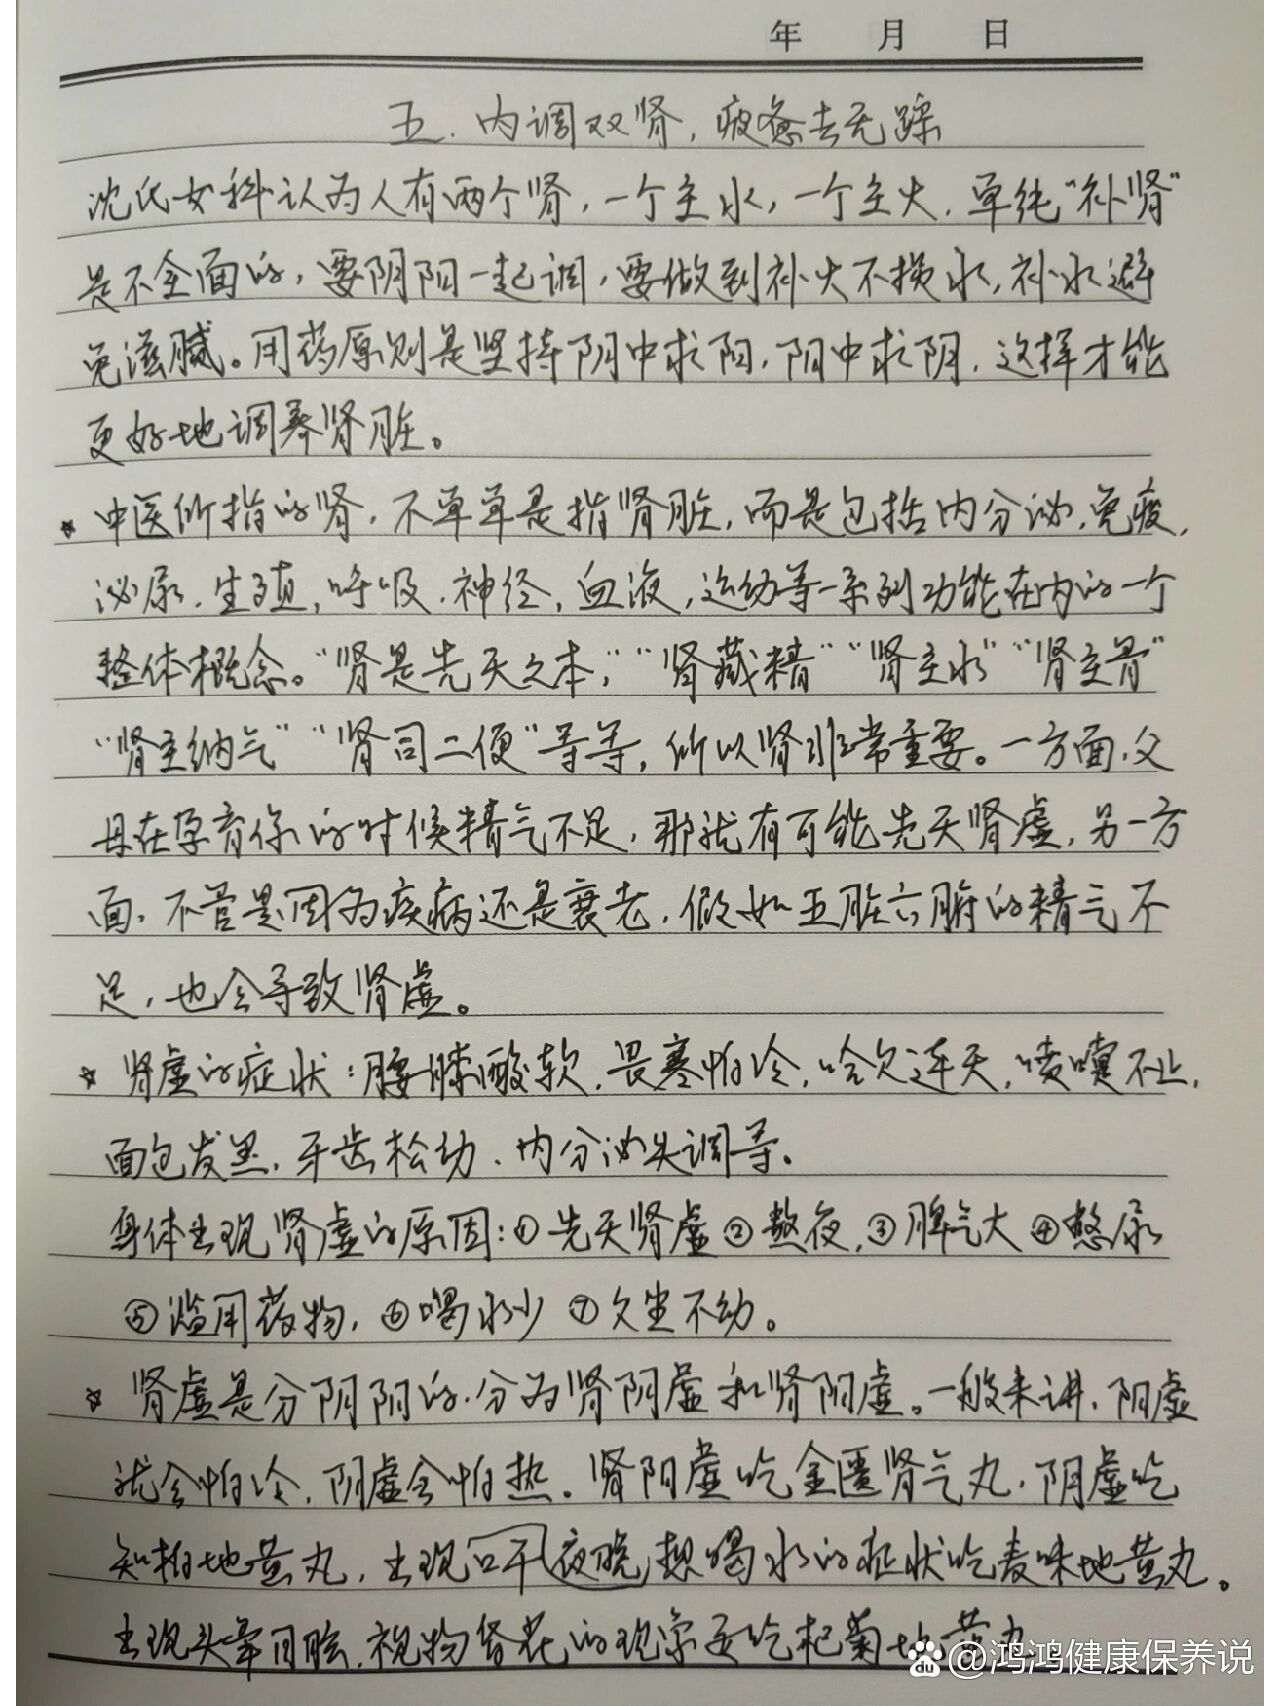 年 月 日
五.内调双肾,疲惫去无踪
沈氏女科认为人有两个肾,一个主水,一个主火.单纯"补肾"
是不全面的,要阴阳一起调,要做到补火不损水,补水避
免滋腻。用药原则是坚持阴中求阳,阳中求阴,这样才能
更好地调养肾脏。
☆中医所指的肾,不单单是指肾脏,而是包括内分泌,免疫,
泌尿.生殖,呼吸.神经,血液,运动等一系列功能在内的一个
整体概念。"肾是先天之本","肾藏精""肾主水""肾主骨"
"肾主纳气""肾司二便"等等,所以肾非常重要。一方面,父
母在孕育你的时候精气不足,那就有可能先天肾虚,另一方
面,不管是因为疾病还是衰老,假如五脏六腑的精气不
足,也会导致肾虚。
☆肾虚的症状:腰膝酸软,畏寒怕冷,哈欠连天,喷嚏不止,
面色发黑,牙齿松动、内分泌失调等。
身体出现肾虚的原因:①先天肾虚②熬夜,③脾气大④憋尿
⑤滥用药物,⑥喝水少⑦久坐不动。
☆肾虚是分阴阳的,分为肾阴虚和肾阳虚。一般来讲,阳虚
就会怕冷,阴虚会怕热。肾阳虚吃金匮肾气丸,阴虚吃
知柏地黄丸,出现口干夜晚想喝水的症状吃麦味地黄丸。
出现头晕目眩,视物昏花的现象要吃杞菊地黄丸
du @鸿鸿健康保养说